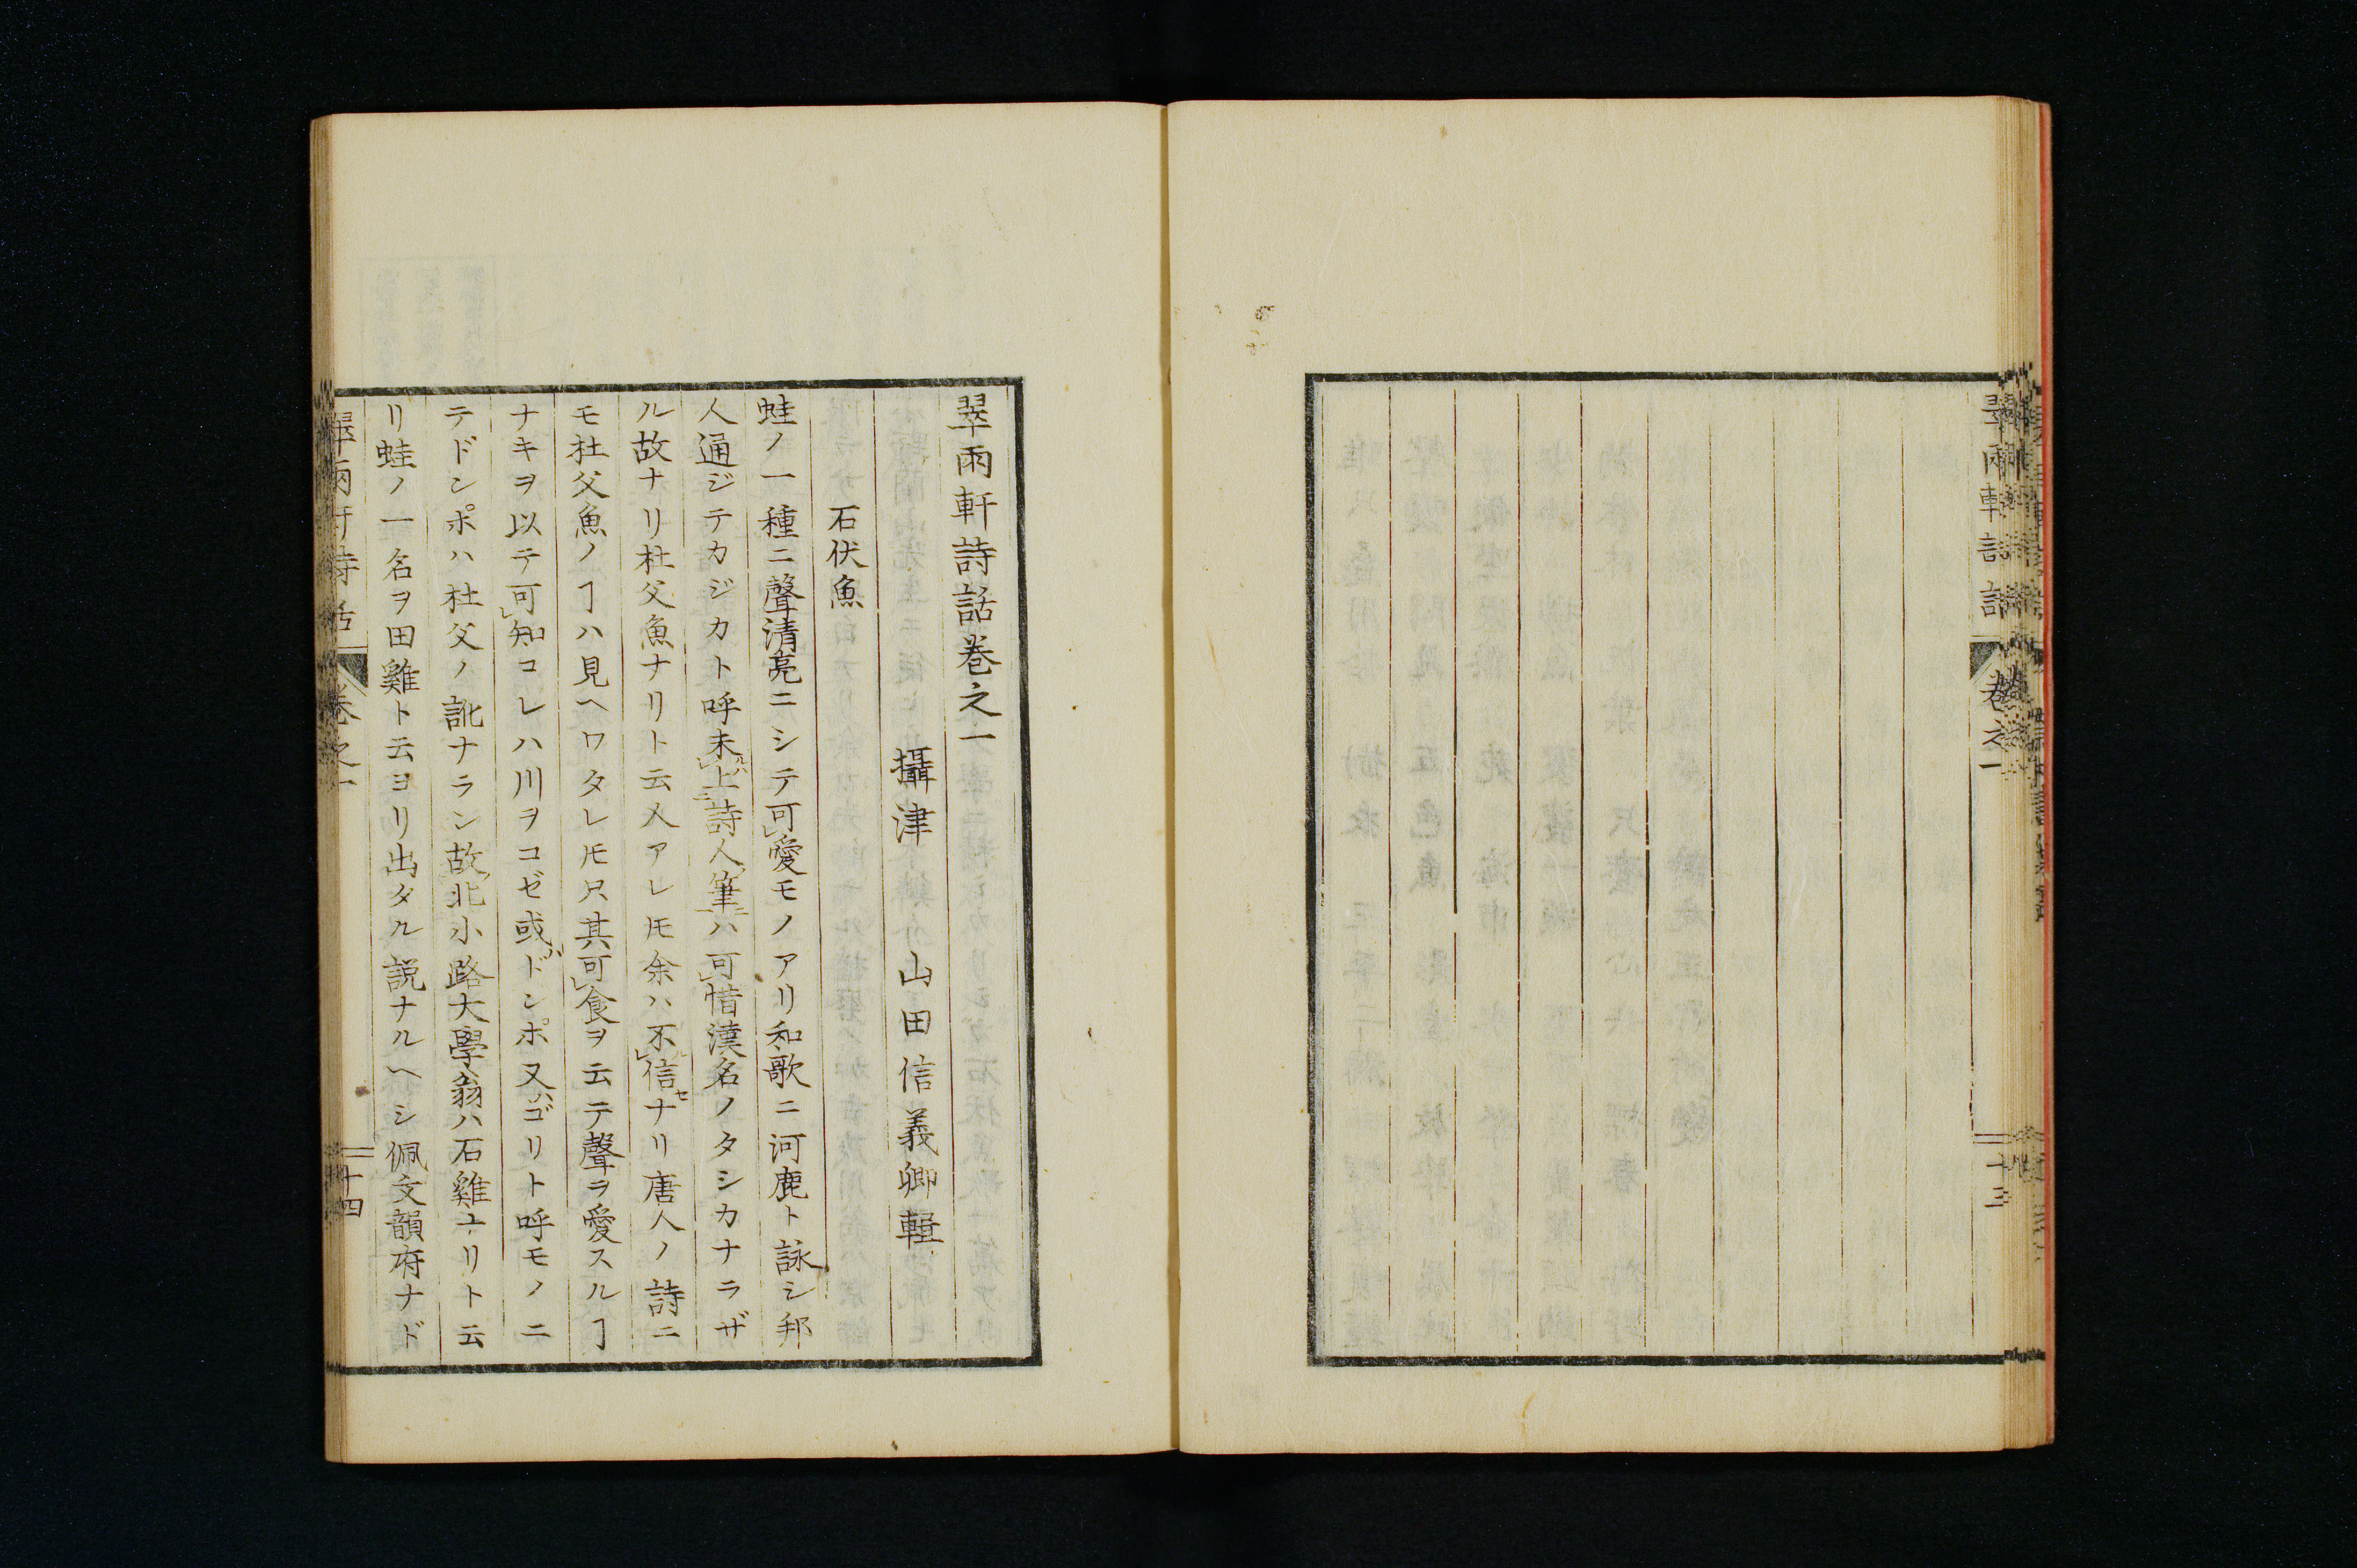 翠雨軒詩話
卷之一
十三
翠雨軒詩話卷之一
攝津 山田信義卿輯
石伏魚
蛙ノ一種ニ聲清亮ニシテ可㆑愛モノアリ和歌ニ河鹿ト詠シ邦
人通ジテカジカト呼未㆑上㆓詩人筆㆒ハ可㆑惜漢名ノタシカナラザ
ル故ナリ杜父魚ナリト云人アレ𪜈余ハ不㆑信セナリ唐人ノ詩ニ
モ杜父魚ノヿハ見ヘワタレ𪜈只其可㆑食ヲ云テ聲ヲ愛スルヿ
ナキヲ以テ可㆑知コレハ川ヲコゼ或ドンポ又ハゴリト呼モノニ
テドンポハ杜父ノ訛ナラン故北小路大學翁ハ石雞ナリト云
リ蛙ノ一名ヲ田雞ト云ヨリ出タル説ナルヘシ佩文韻府ナド
翠雨軒詩話
卷之一
十四